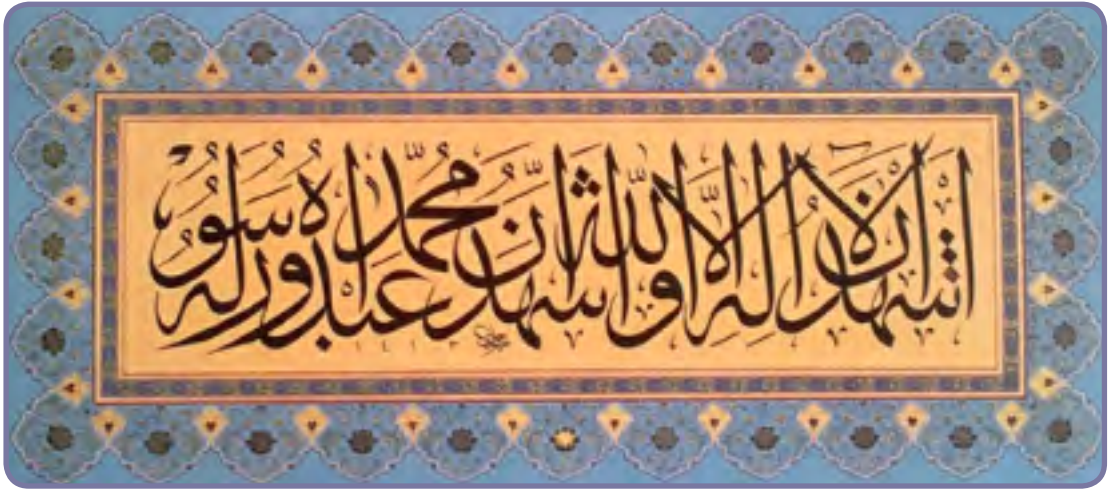 اشهد ان لا اله الا الله و اشهد ان محمدا عبده و رسوله